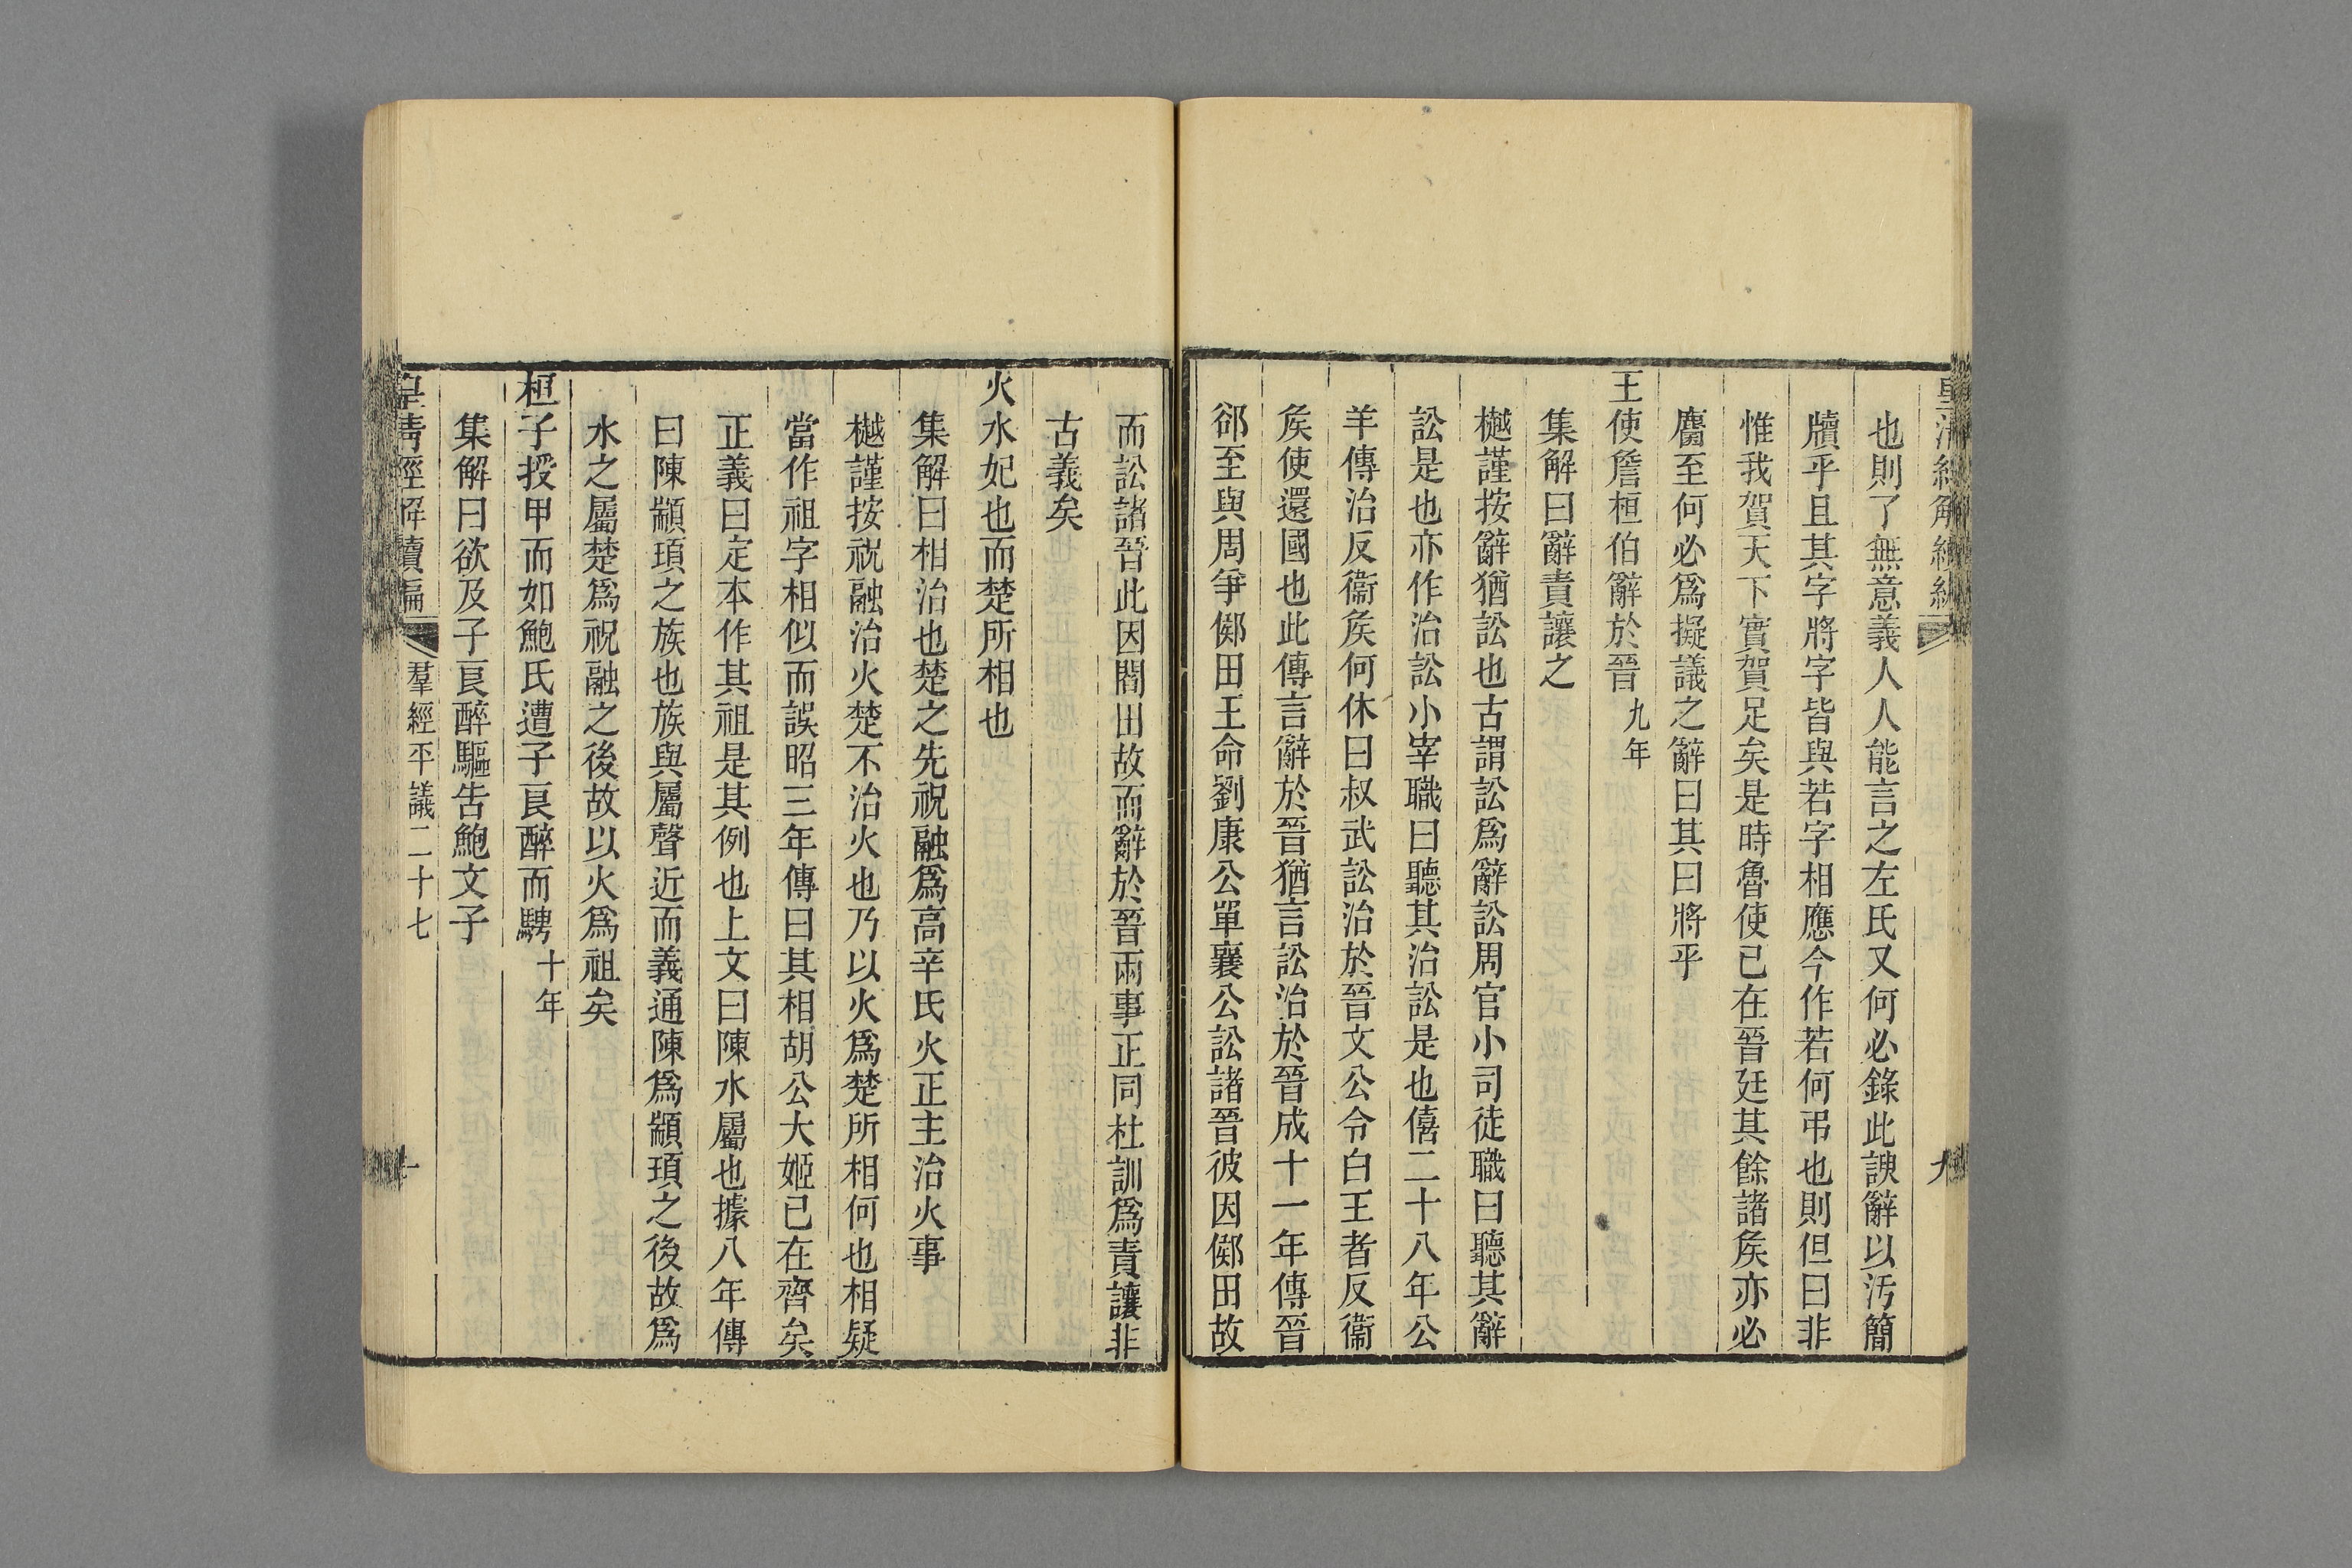 也則了無意義人人能言之左氏又何必錄此諛辭以汚簡
牘乎且其字將字皆與若字相應今作若何弔也則但曰非
惟我賀天下實賀足矣是時魯使已在晉廷其餘諸矦亦必
麕至何必爲擬議之辭曰其曰將乎
王使詹桓伯辭於晉九年
集解曰辭責讓之
樾謹按辭猶訟也古謂訟爲辭訟周官小司徒職曰聽其辭
訟是也亦作治訟小宰職曰聽其治訟是也僖二十八年公
羊傳治反衞矦何休曰叔武訟治於晉文公令白王者反衞
矦使還國也此傳言辭於晉猶言訟治於晉成十一年傳晉
郤至與周爭鄇田王命劉康公單襄公訟諸晉彼因鄇田故
而訟諸晉此因閻田故而辭於晉兩事正同杜訓爲責讓非
古義矣
火水妃也而楚所相也
集解曰相治也楚之先祝融爲高辛氏火正主治火事
樾謹按祝融治火楚不治火也乃以火爲楚所相何也相疑
當作祖字相似而誤昭三年傳曰其相胡公大姬已在齊矣
正義曰定本作其祖是其例也上文曰陳水屬也據八年傳
曰陳顓頊之族也族與屬聲近而義通陳爲顓頊之後故爲
水之屬楚爲祝融之後故以火爲祖矣
桓子授甲而如鮑氏遭子良醉而騁十年
集解曰欲及子良醉驅告鮑文子
皇淸經解續編 羣經平議二十七